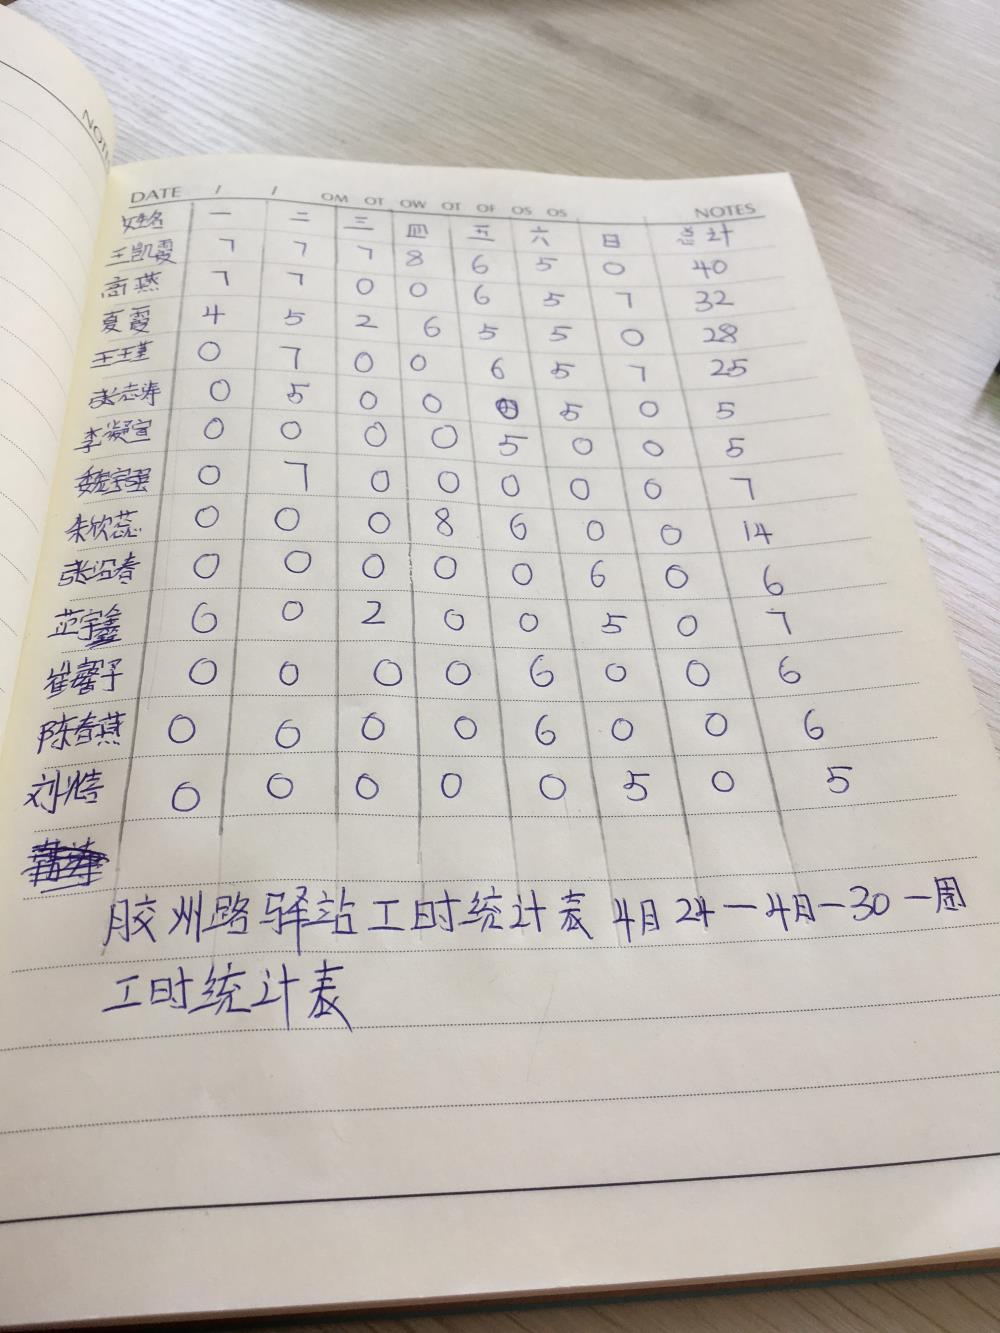 NOTES
DATE / / OM OT OW OT OF OS OS NOTES
姓名 一 二 三 四 五 六 日 总计
王凯霞 7 7 7 8 6 5 0 40
高燕 7 7 0 0 6 5 7 32
夏霞 4 5 2 6 5 5 0 28
王玉瑾 0 7 0 0 6 5 7 25
张志涛 0 5 0 0 5 0 5
李凝宣 0 0 0 0 5 0 0 5
魏宇强 0 7 0 0 0 0 0 7
朱欣蕊 0 0 0 8 6 0 0 14
张沿春 0 0 0 0 0 6 0 6
范宇鑫 6 0 2 0 0 5 0 7
崔馨予 0 0 0 0 6 0 0 6
陈春燕 0 0 0 0 6 0 0 6
刘 0 0 0 0 0 5 0 5
胶州路驿站工时统计表 4月24—4月—30一周
工时统计表